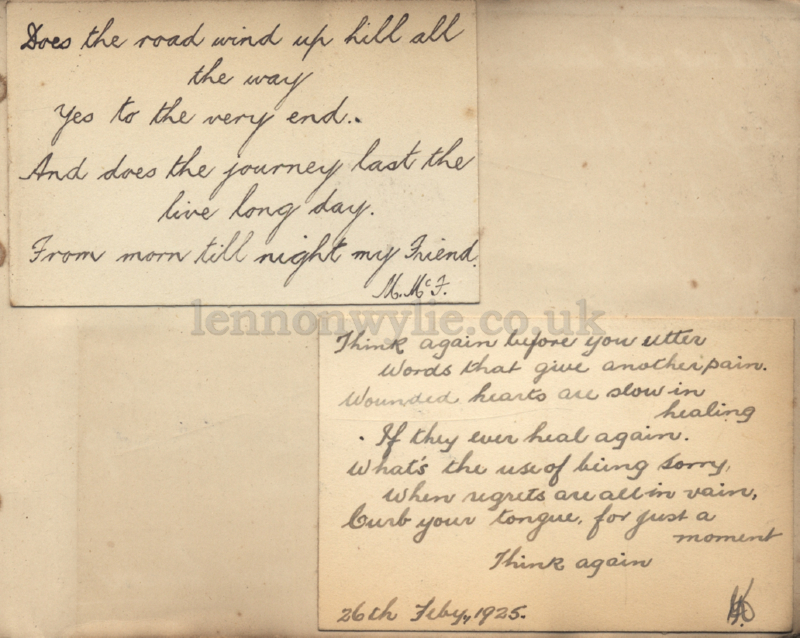 Does the road wind up hill all
the way
Yes to the very end..
And does the journey last the
live long day.
From morn till night my Friend.
M. McF.
lennonwylie.co.uk
Think again before you utter
Words that give another pain.
Wounded hearts are slow in
healing
If they ever heal again.
What's the use of being sorry,
When regrets are all in vain,
Curb your tongue, for just a
moment
Think again
26th Feby, 1925.